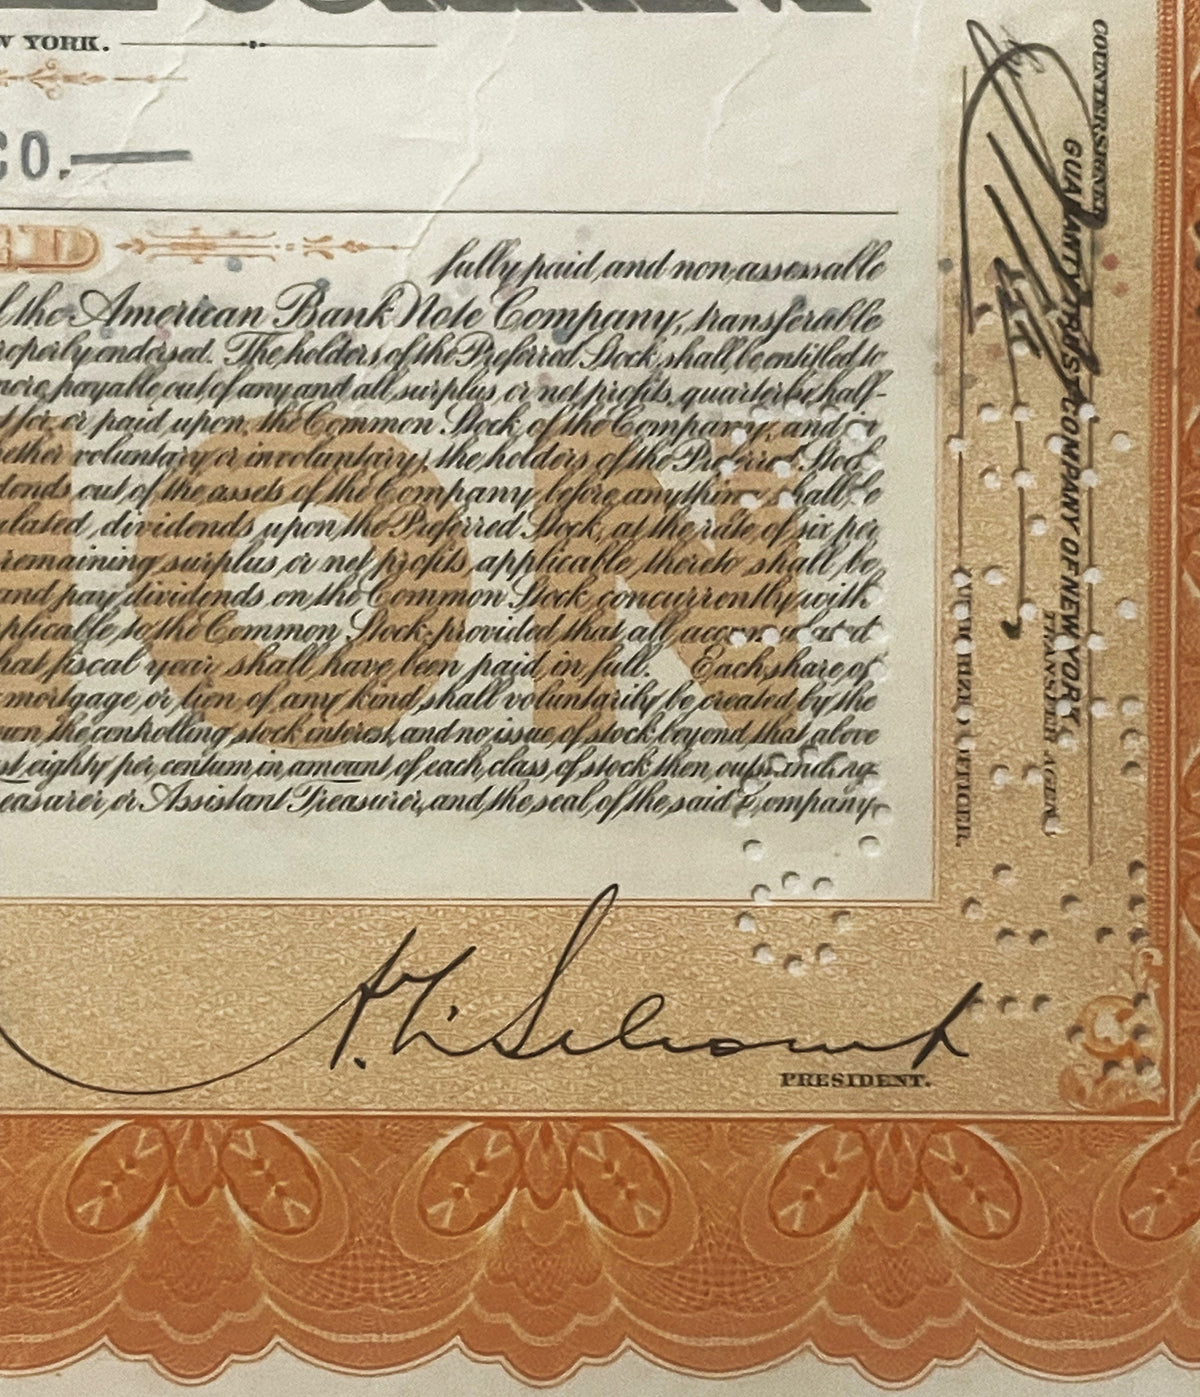 YORK.
CO.
fully paid and non-assessable
the American Bank Note Company, transferable
properly endorsed. The holders of the Preferred Stock shall be entitled to
more, payable out of any and all surplus or net profits, quarterly, half-
for, or paid upon, the Common Stock of the Company, and in
whether voluntary or involuntary, the holders of the Preferred Stock
dends out of the assets of the Company before anything shall be
ulated, dividends upon the Preferred Stock, at the rate of six per
remaining surplus, or net profits applicable thereto shall be
and pay dividends on the Common Stock concurrently with
plicable to the Common Stock, provided that all accumulated
that fiscal year shall have been paid in full. Each share of
mortgage, or lien of any kind, shall voluntarily be created by the
own the controlling stock interest, and no issue of stock beyond that above
st eighty per centum in amount of each class of stock then outstanding
easurer or Assistant Treasurer, and the seal of the said Company
PRESIDENT.
COUNTERSIGNED
GUARANTY TRUST COMPANY OF NEW YORK
TRANSFER AGENT
AUTHORIZED OFFICER.